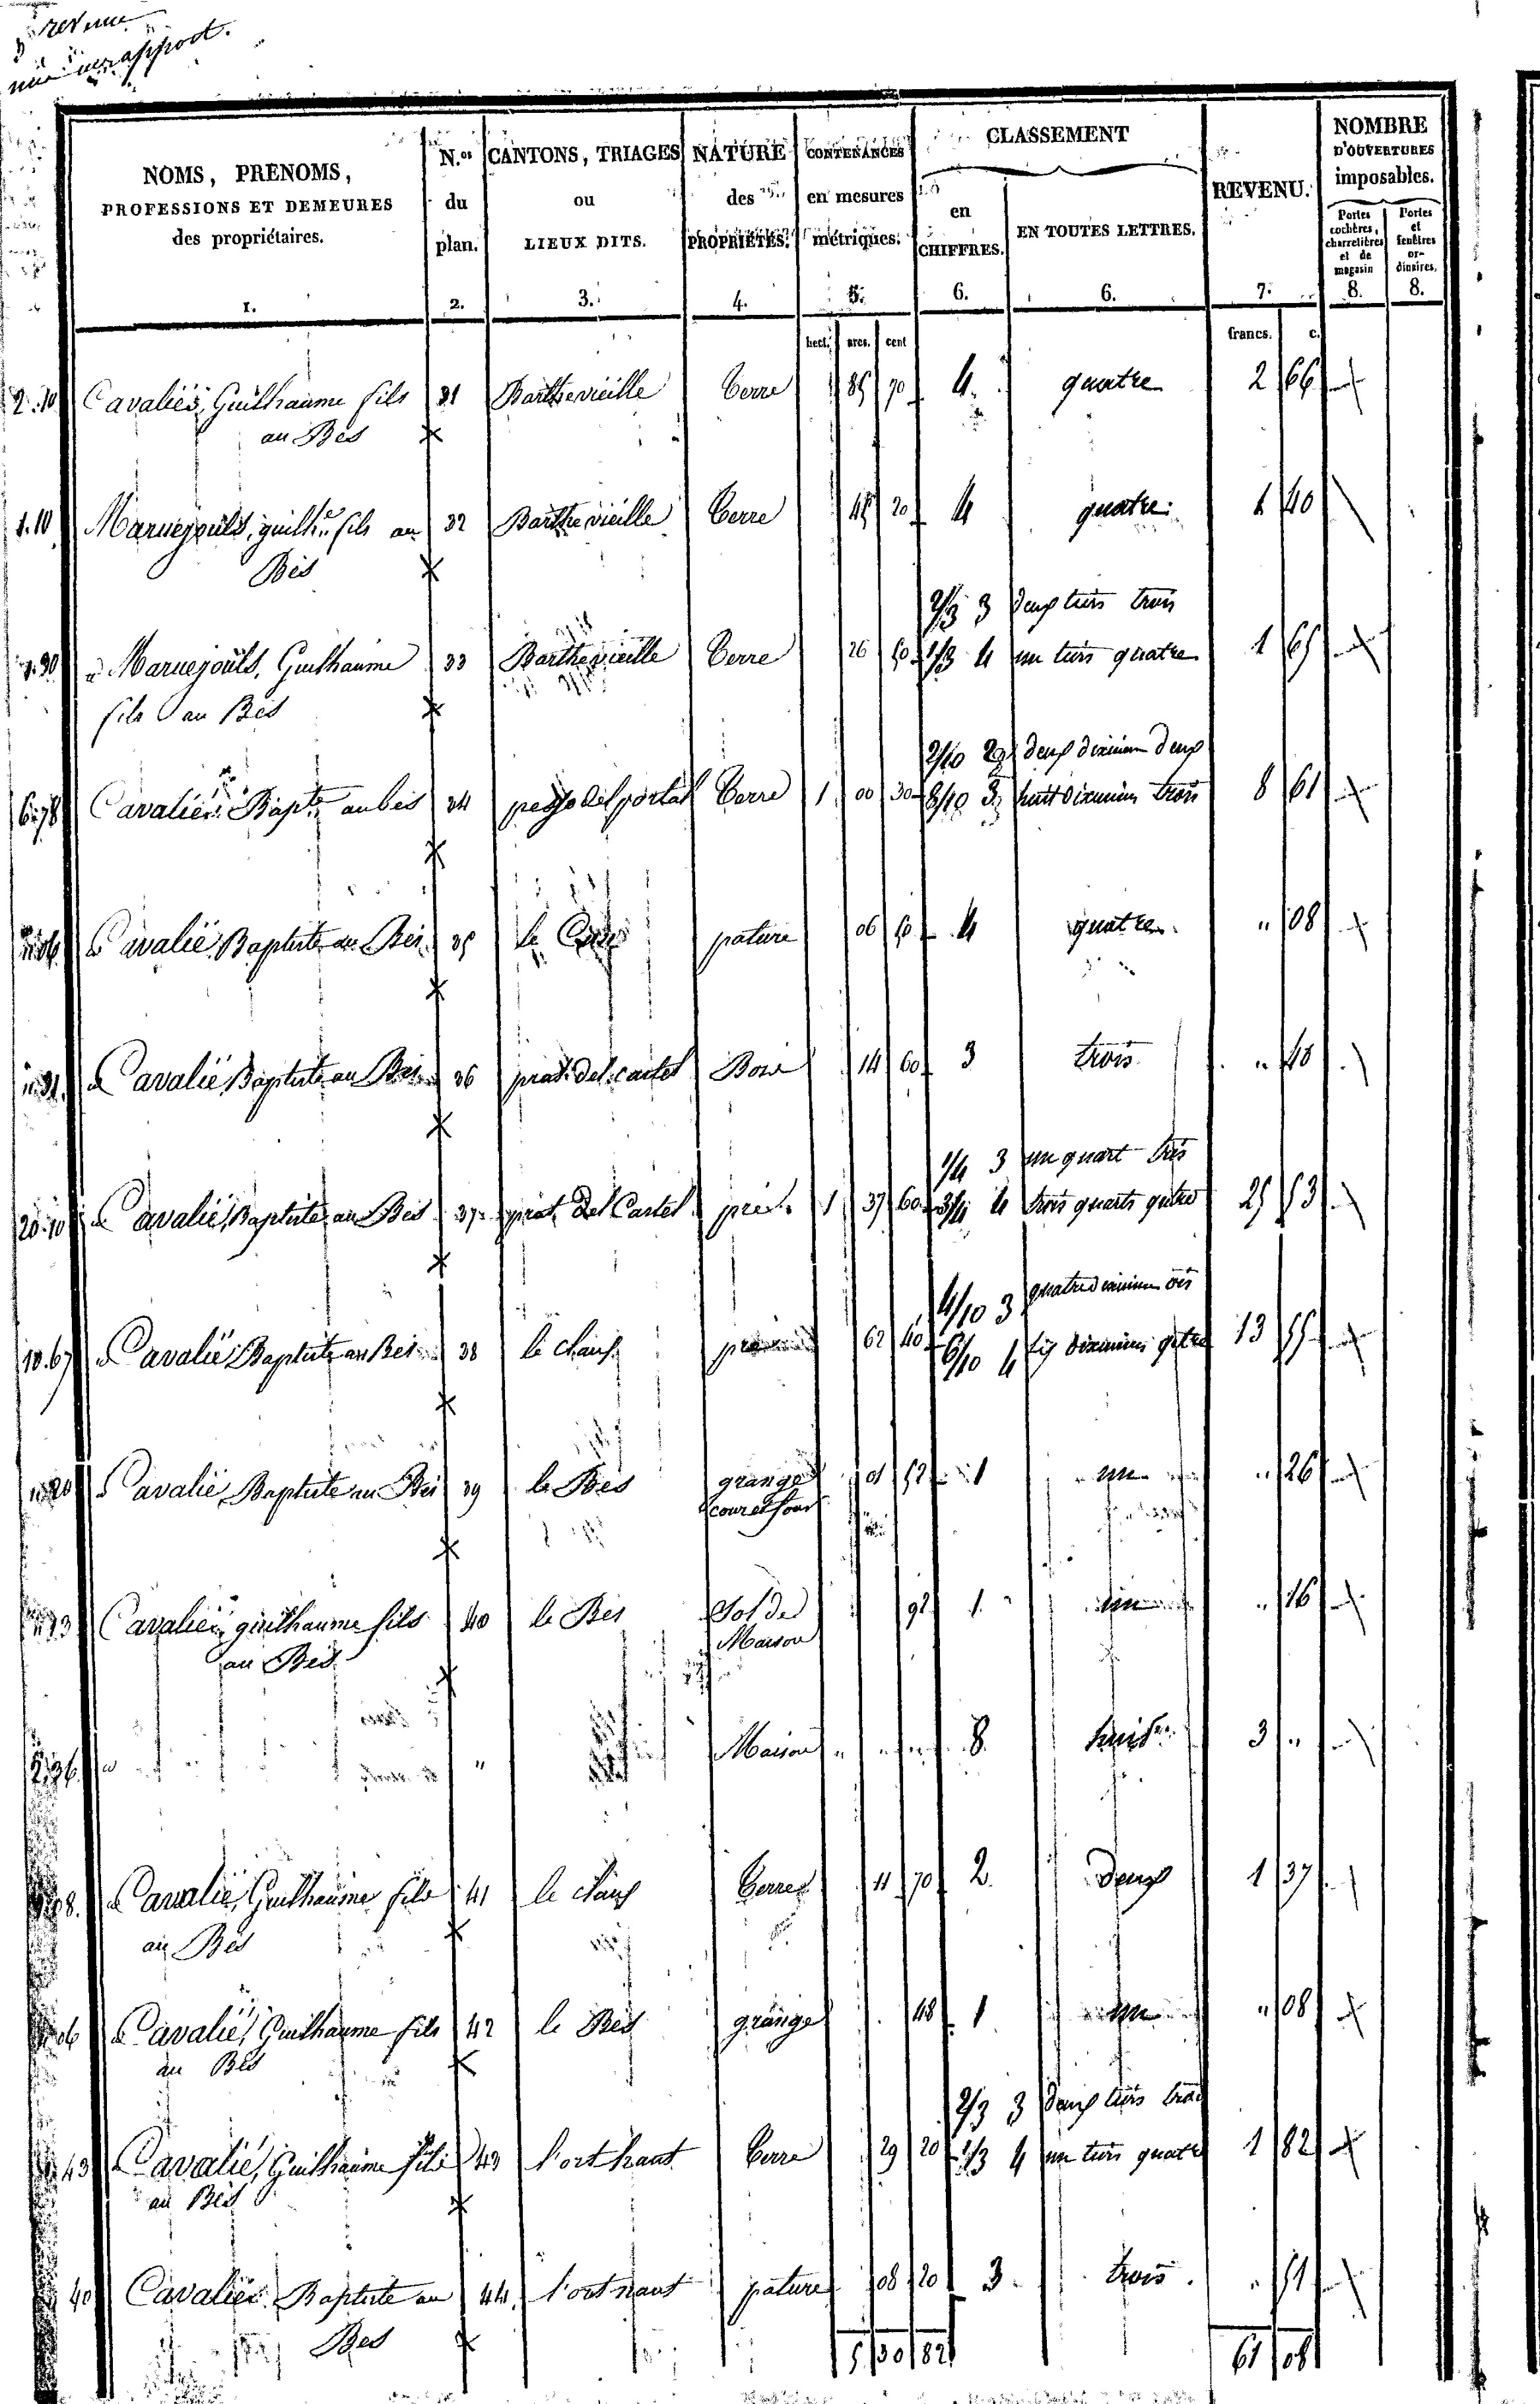 revenu
rapport.
NOMS, PRENOMS,
PROFESSIONS ET DEMEURES
des propriétaires.
1.
N.os
du
plan.
2.
CANTONS, TRIAGES
ou
LIEUX DITS.
3.
NATURE
des
PROPRIÉTÉS.
4.
CONTENANCES
en mesures
métriques.
5.
CLASSEMENT
en
CHIFFRES.
6.
EN TOUTES LETTRES.
6.
REVENU.
7.
NOMBRE
D'OUVERTURES
imposables.
Portes cochères, charretières et de magasin
8.
Portes et fenêtres ordinaires.
8.
hect. ares. cent
francs. c.
Cavalié, Guilhaume fils 31 Barthevieille Terre 85 70 4. quatre 2 66
au Bes
1.10 Maruejouls, guilh.e fils au 32 Barthevieille Terre 45 20 4 quatre 1 40
Bès
2/3 3 deux tiers trois
Maruejouls, Guilhaume 33 Barthevieille Terre 26 50 1/3 4 un tiers quatre 1 65
fils au Bès
2/10 2 deux dixième deux
6.78 Cavalié Bapt.te au bès 34 del portal Terre 1 00 30 8/10 3 huit dixièmes trois 8 61
Cavalié Baptiste au Bès 35 le pature 06 50 4 quatre " 08
Cavalié Baptiste au Bès 36 prat del castel Bois 14 60 3 trois " 40
1/4 3 un quart trois
20.10 Cavalié Baptiste au Bès 37 prat del Castel pré 1 37 60 3/4 4 trois quarts quatre 25 53
4/10 3 quatre dixième trois
10.67 Cavalié Baptiste au Bès 38 le claux 62 40 6/10 4 six dixièmes quatre 13 55
Cavalié Baptiste au Bès 39 le Bès grange 01 52 1 un " 26
cour et four
Cavalié guilhaume fils 40 le Bès Sol de 92 1. un " 16
au Bès Maison
" " Maison " 8. huit 3 "
Cavalié, Guilhaume fils 41 le claux Terre 11 70 2. deux 1 37
au Bès
Cavalié, Guilhaume fils 42 le Bès grange 48 1 un " 08
au Bès
2/3 3 deux tiers trois
Cavalié, Guilhaume fils 43 l'ort haut Terre 29 20 1/3 4 un tiers quatre 1 82
au Bès
40 Cavalié Baptiste au 44 l'ort haut pature 08 20 3. trois. " 51
Bes
5 30 82 61 08